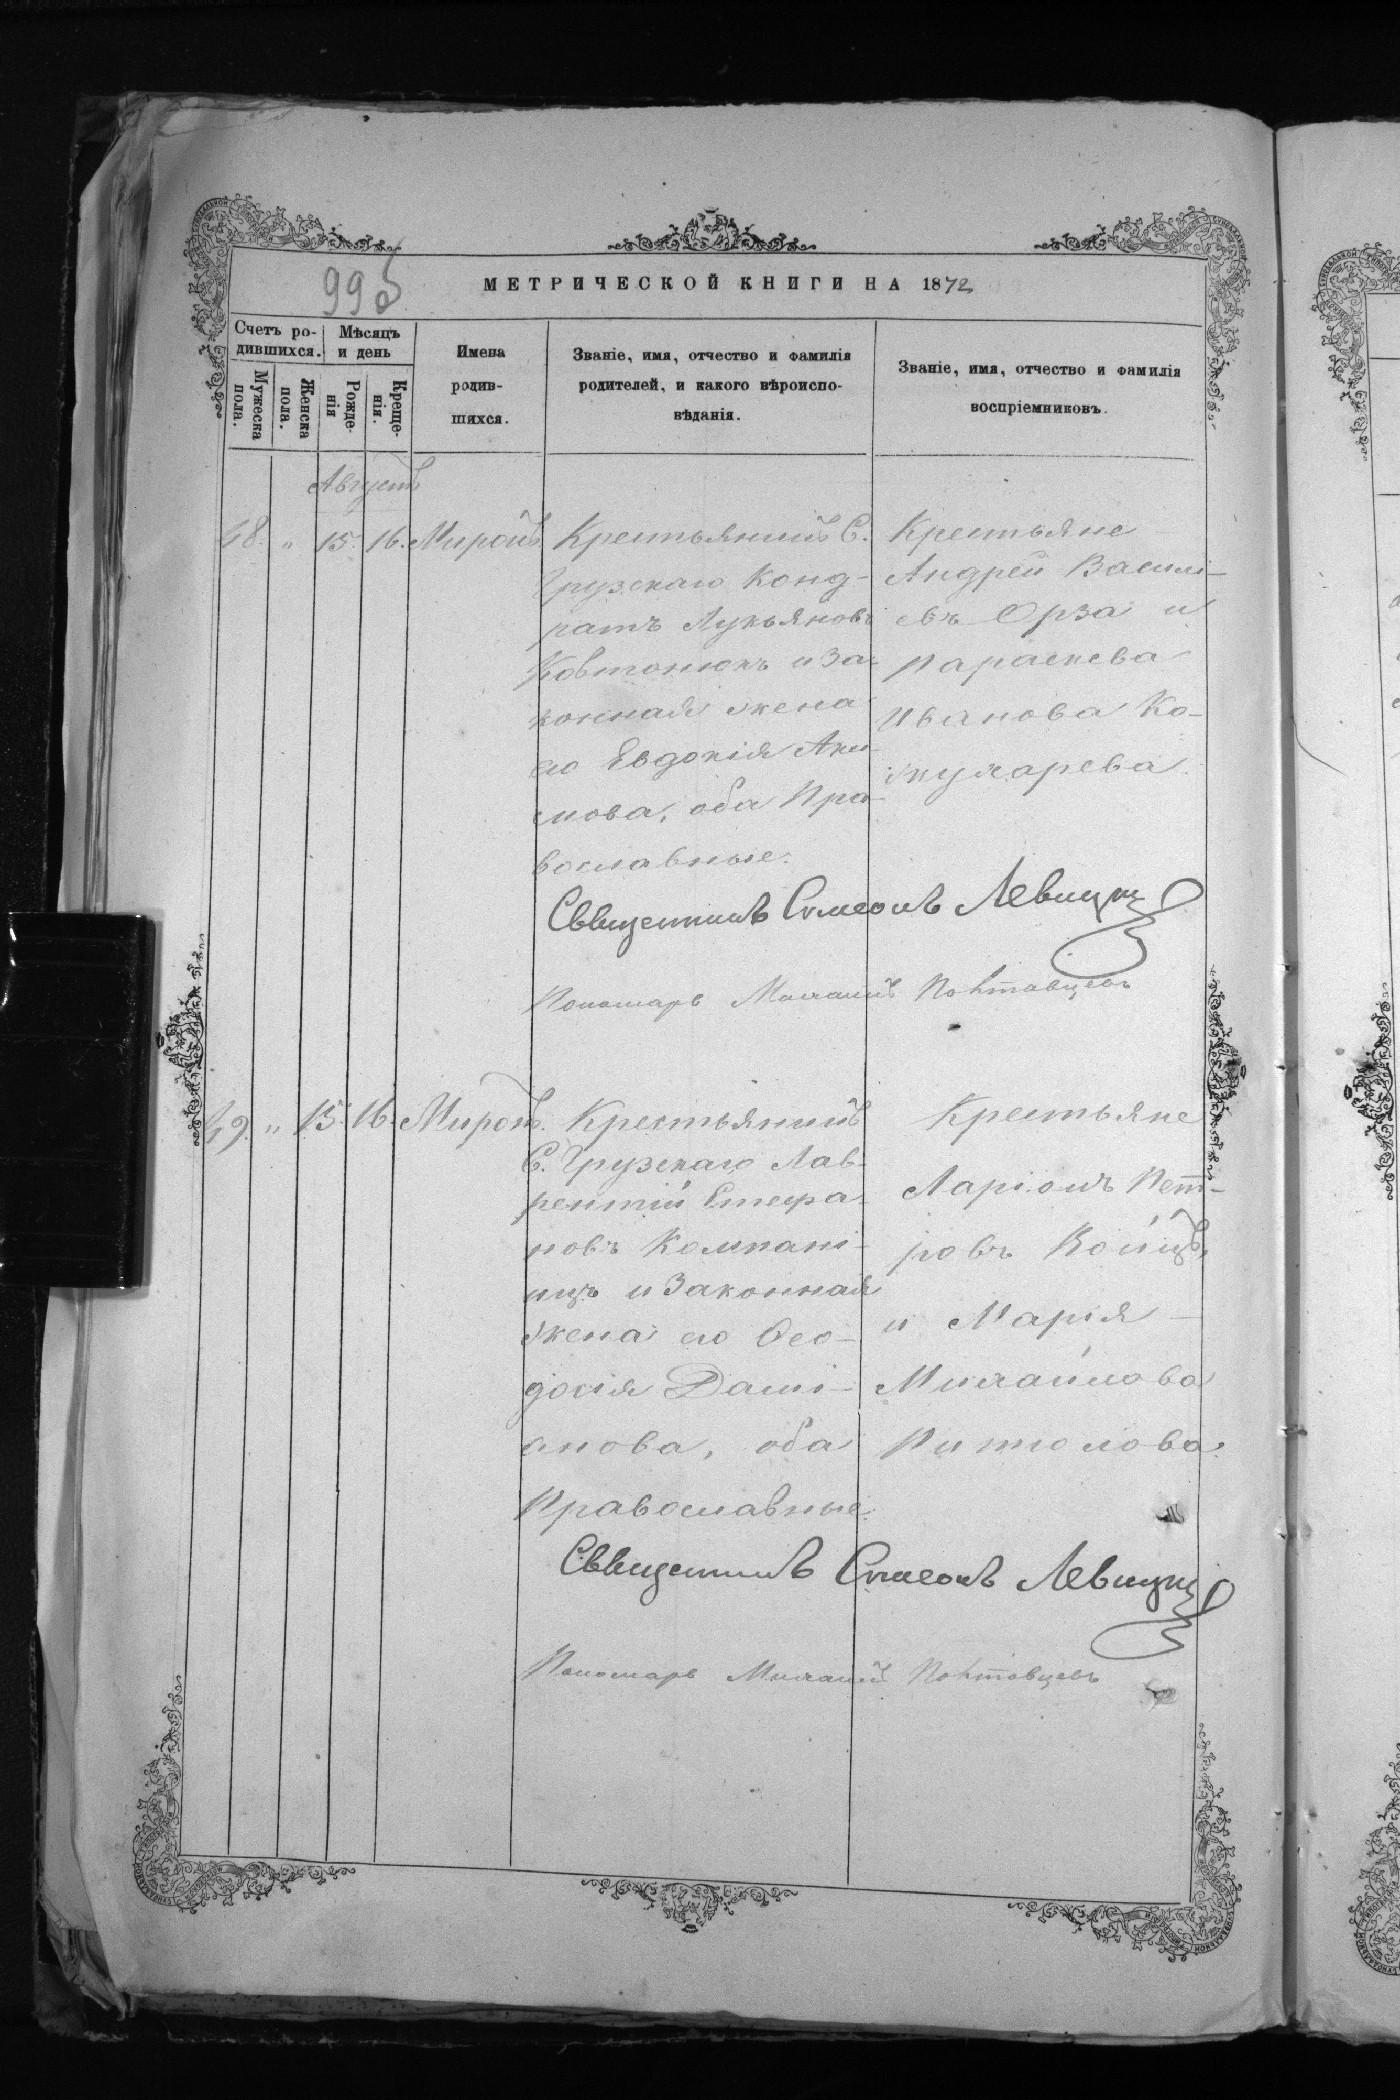 995
МЕТРИЧЕСКОЙ КНИГИ НА 1872
Счетъ ро-
дившихся.
Мужеска
пола.
Женска
пола.
Мѣсяцъ
и день
Рожде-
нія
Креще-
нія.
Имена
родив-
шихся.
Званіе, имя, отчество и фамилія
родителей, и какого вѣроиспо-
вѣданія.
Званіе, имя, отчество и фамилія
воспріемниковъ.
Августъ
48. " 15. 16. Миронъ
Крестьянинъ С.
Грузскаго Конд-
ратъ Лукьяновъ
Ковтонюкъ и За-
конная жена
его Евдокія Аки-
мова, оба Пра-
вославные.
Крестьяне
Андрей Василі-
евъ Орза и
Параскева
Иванова Ко-
жухарева.
Священникъ Симеонъ Левицкій
Пономарь Михаилъ Полтавцевъ
49. " 15. 16. Миронъ.
Крестьянинъ
С. Грузскаго Лав-
рентій Стефа-
новъ Компані-
ицъ и Законная
жена его Ѳео-
досія Дамі-
анова, оба
Православные.
Крестьяне
Ларіонъ Пет-
ровъ
и Марія
Михайлова
Священникъ Симеонъ Левицкій
Пономарь Михаилъ Полтавцевъ